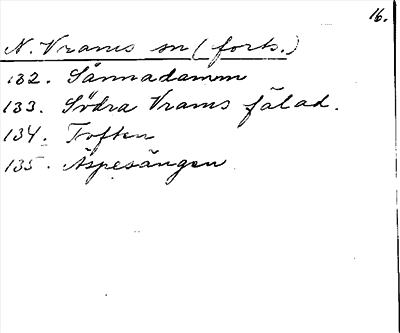 16.
N. Vrams sn (forts.)
132. Sånnadamm
133. Södra Vrams fälad.
134. Toften
135. Äspesängen